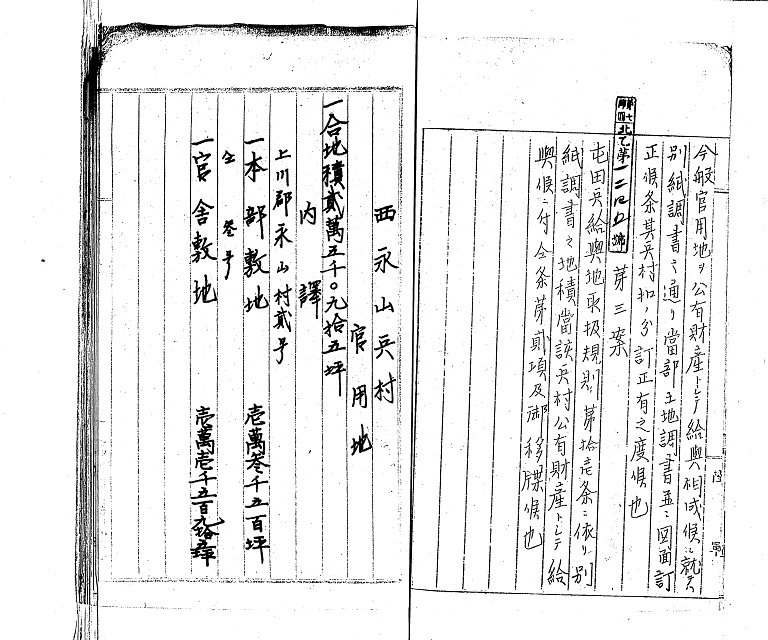 今般官用地ヲ公有財産トシテ給與相成候ニ就テハ
別紙調書之通リ當部土地調書並ニ図面訂
正候条其兵村扣ノ分訂正有之度候也
北乙第一二四五號 第三案
屯田兵給與地取扱規則第拾壱条ニ依リ別
紙調書之地積當該兵村公有財産トシテ給
與候ニ付仝条第貳項及御移牒候也
陸軍
西永山兵村
官用地
一合地積貳萬五千〇九拾五坪
内譯
上川郡永山村貳号
一本部敷地 壱萬叁千五百坪
仝 叁号
一官舎敷地 壱萬壱千五百九拾五坪